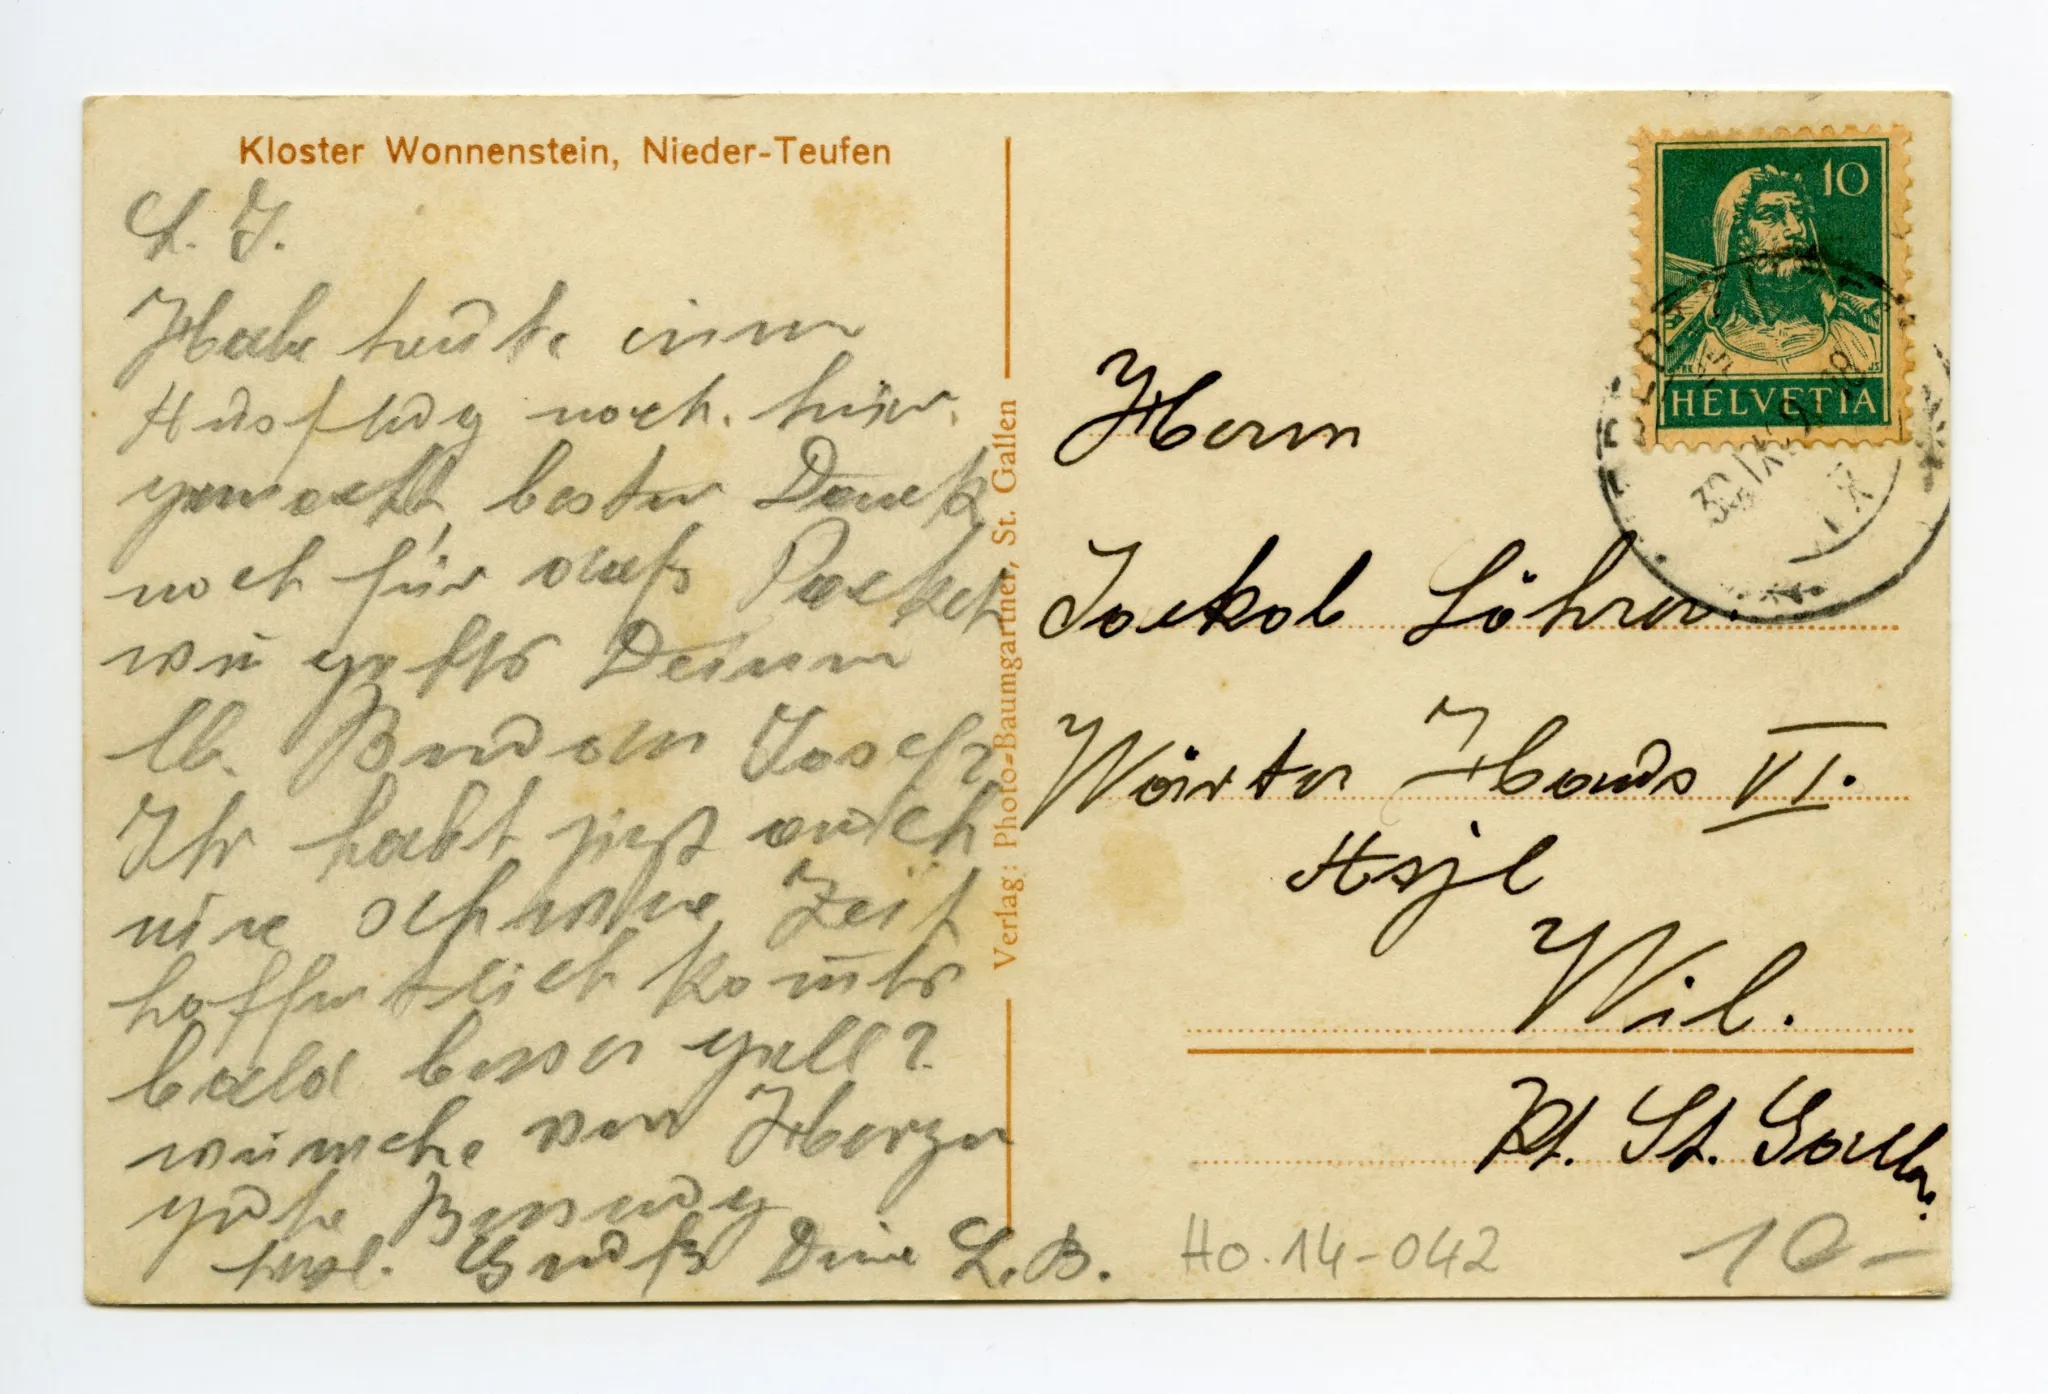 Kloster Wonnenstein, Nieder-Teufen
L. J.
Habe heute einen
Ausflug noch hier
gemacht, besten Dank
noch für das Packet
wie gehts Deinem
lb. Bruder Josef?
Ihr habt jetzt auch
eine schwere Zeit
hoffentlich kommts
bald besser gell?
wünsche von Herzen
gute Besserung
herzl. Gruß Deine L. B.
Verlag: Photo-Baumgartner, St. Gallen
10
HELVETIA
Herrn
Jackob Löhrer.
Wärter Haus VI.
Asyl
Wil.
Kt. St. Gallen.
Ho.14-042
10-